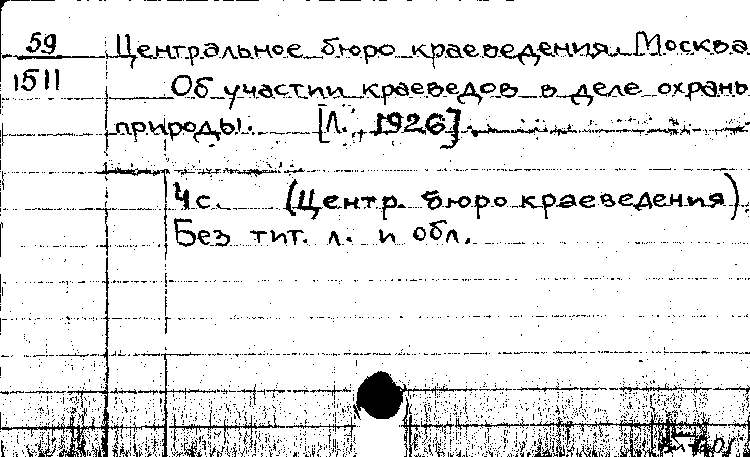 59 Центральное бюро краеведения. Москва
1511 Об участии краеведов в деле охраны
природы. [Л., 1926].
4 с. (Центр. бюро краеведения)
Без тит. л. и обл.